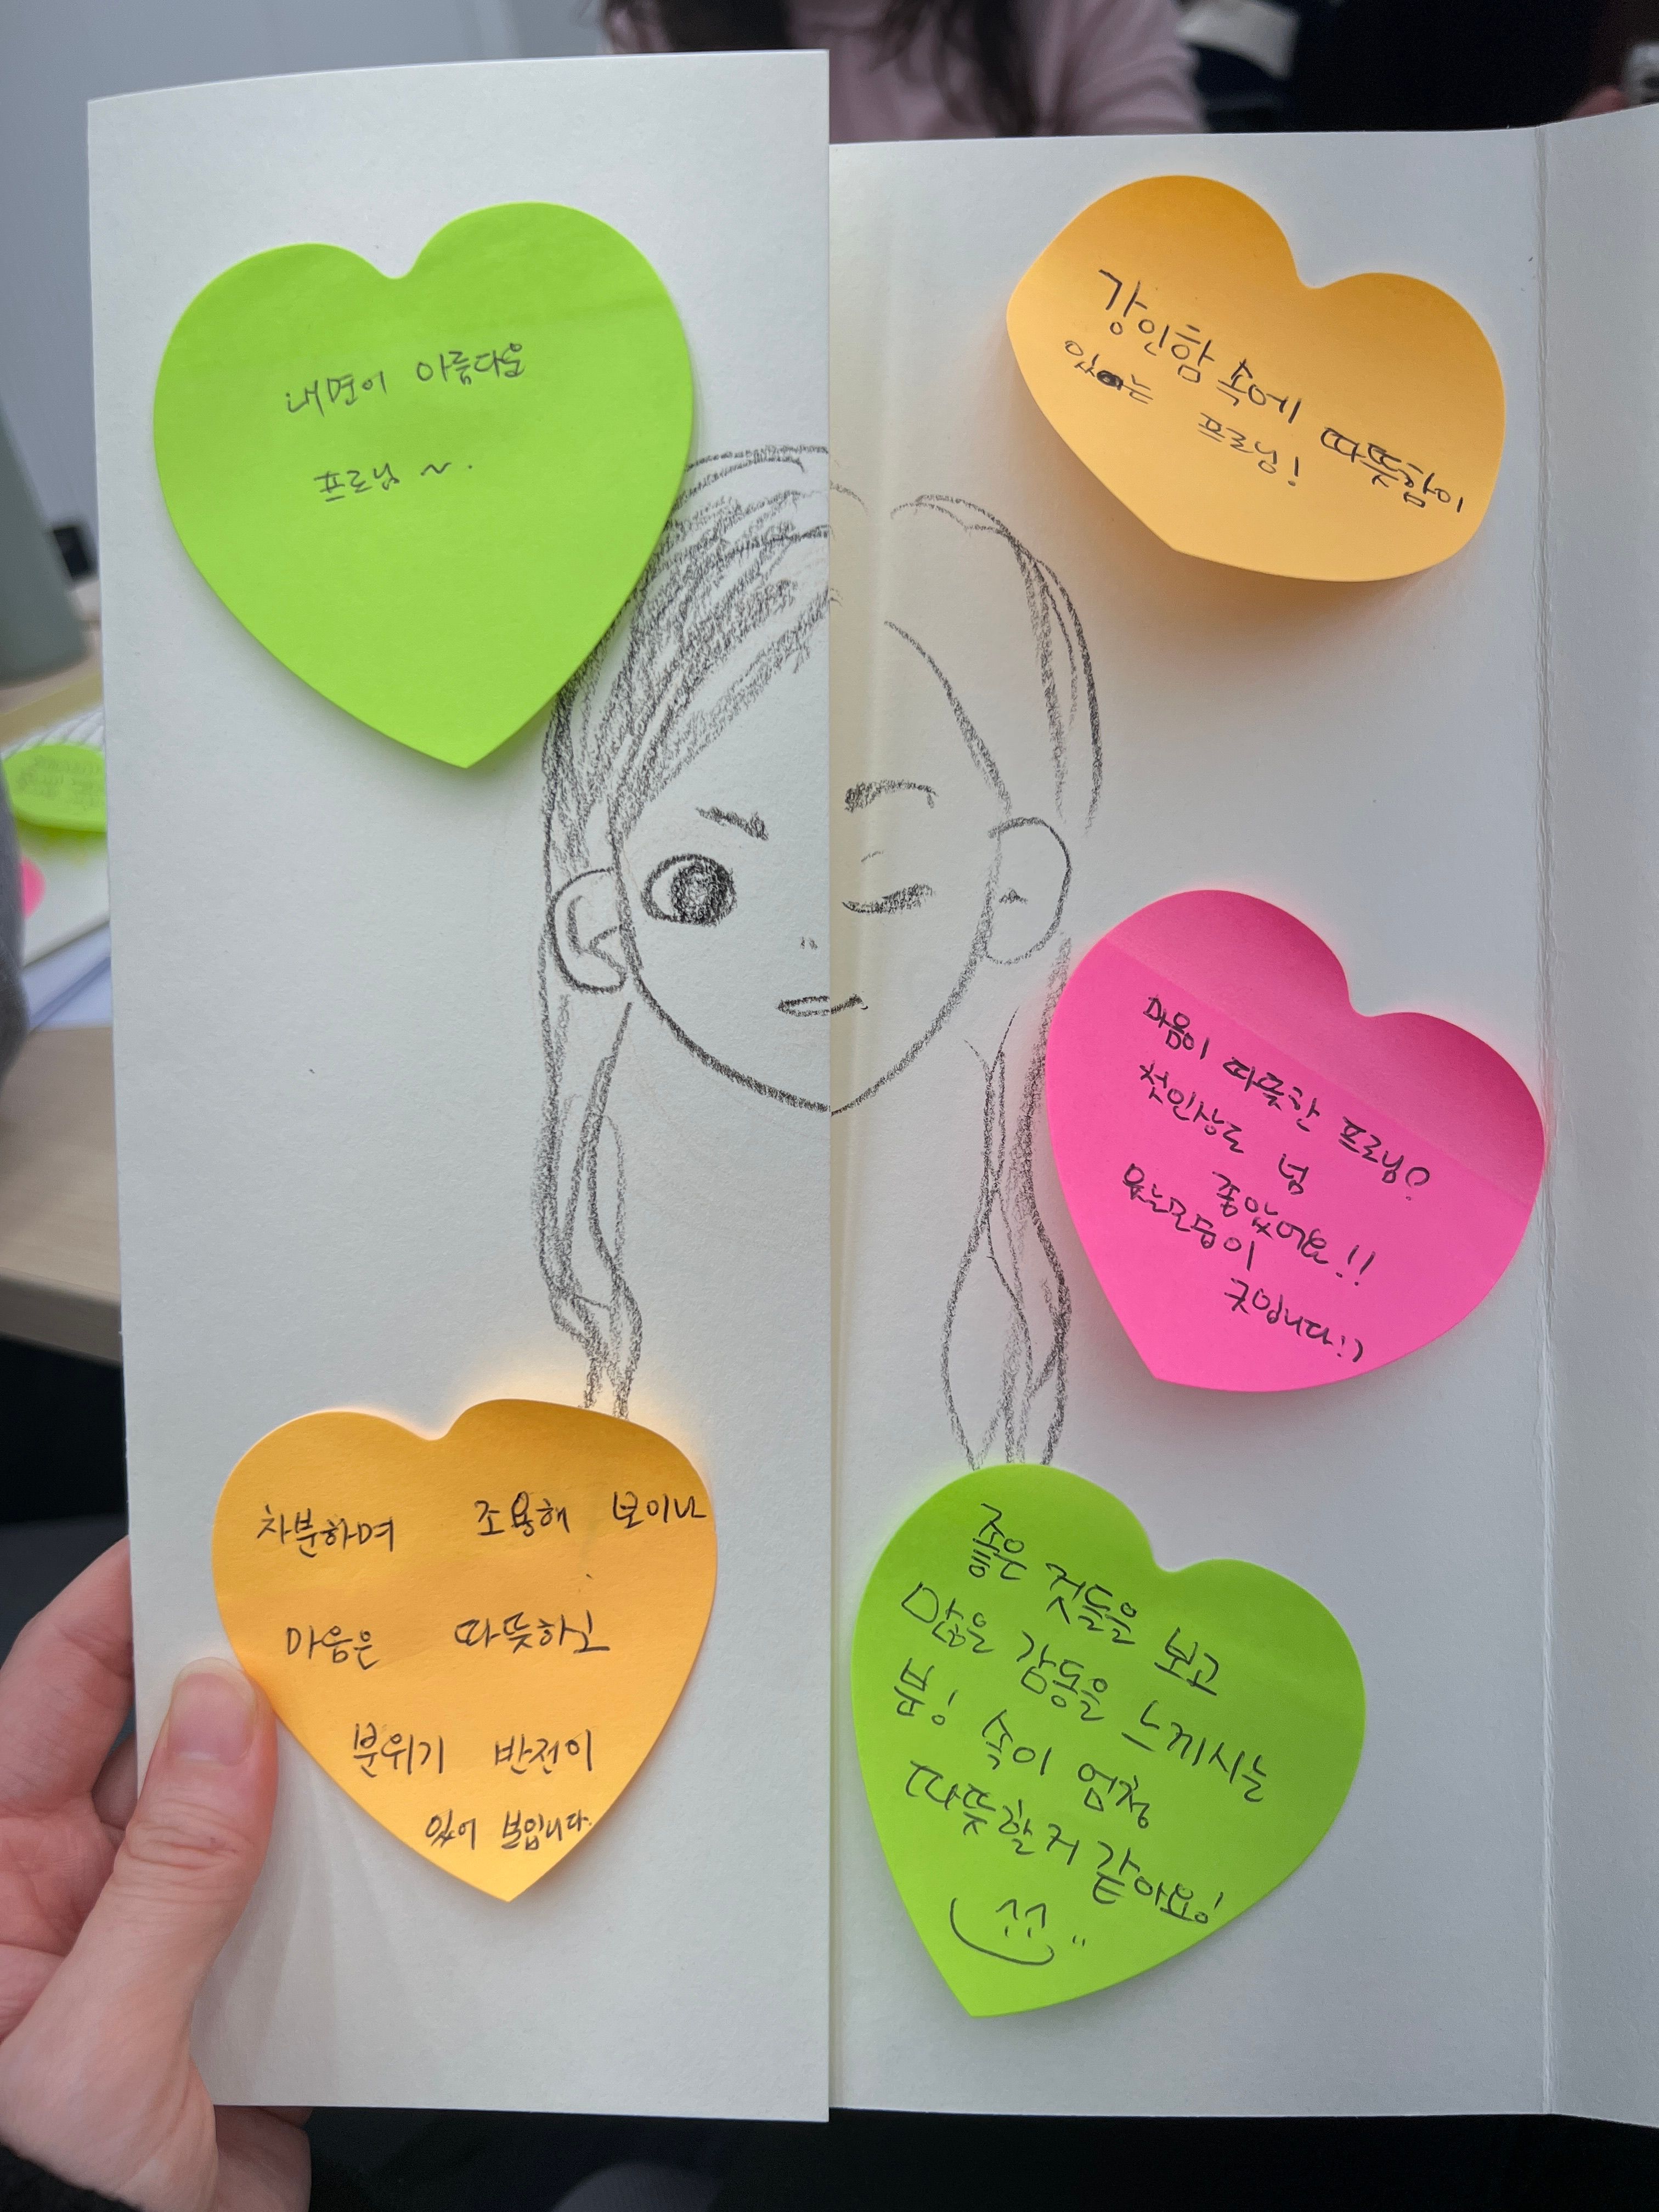 내면이 아름다운
프로님 ~.
강인함 속에 따뜻함이
있는 프로님!
마음이 따뜻한 프로님♡
첫인상도 넘
좋았어요!!
웃는모습이
굿입니다!!
차분하며 조용해 보이나
마음은 따뜻하고
분위기 반전이
있어 보입니다.
좋은 것들을 보고
많은 감동을 느끼시는
분! 속이 엄청
따뜻할거 같아요!